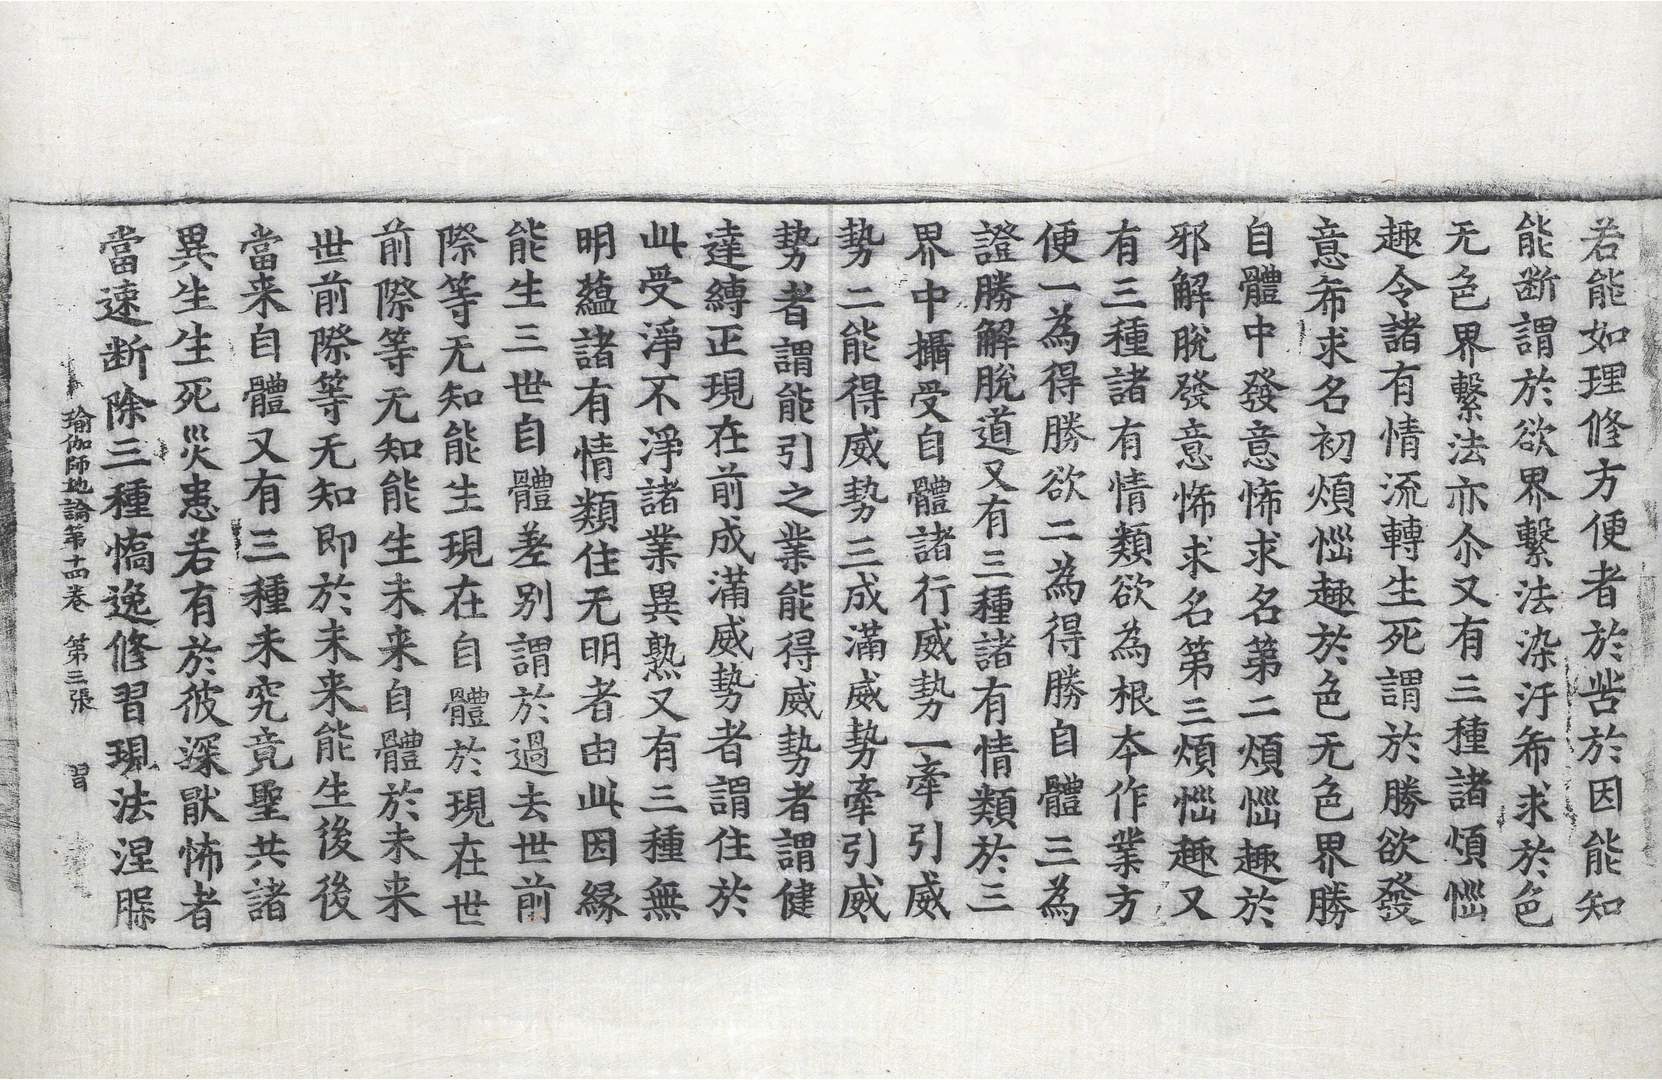 若能如理修方便者於苦於因能知
能断謂於欲界繫法染汙希求於色
无色界繫法亦尒又有三種諸煩惱
趣令諸有情流轉生死謂於勝欲發
意希求名初煩惱趣於色无色界勝
自體中發意怖求名第二煩惱趣於
邪解脫發意怖求名第三煩惱趣又
有三種諸有情類欲為根夲作業方
便一為得勝欲二為得勝自體三為
證勝解脫道又有三種諸有情類於三
界中攝受自體諸行威勢一牽引威
勢二能得威勢三成滿威勢牽引威
勢者謂能引之業能得威勢者謂健
達縛正現在前成滿威勢者謂住於
此受淨不淨諸業異熟又有三種無
明蘊諸有情類住无明者由此因緣
能生三世自體差别謂於過去世前
際等无知能生現在自體於現在世
前際等无知能生未来自體於未来
世前際等无知即於未来能生後後
當来自體又有三種未究竟聖共諸
異生生死災患若有於彼深猒怖者
當速断除三種憍逸修習現法涅槃
瑜伽師地論第十四卷 第三張 習